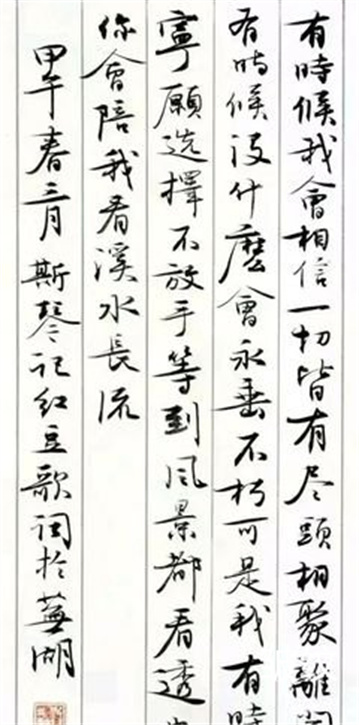 有時候我會相信一切皆有尽頭相聚離開
有時候沒什麽會永垂不朽可是我有時
寧願选擇不放手等到风景都看透
你會陪我看溪水長流
甲午春三月斯琴记红豆歌词於蕪湖